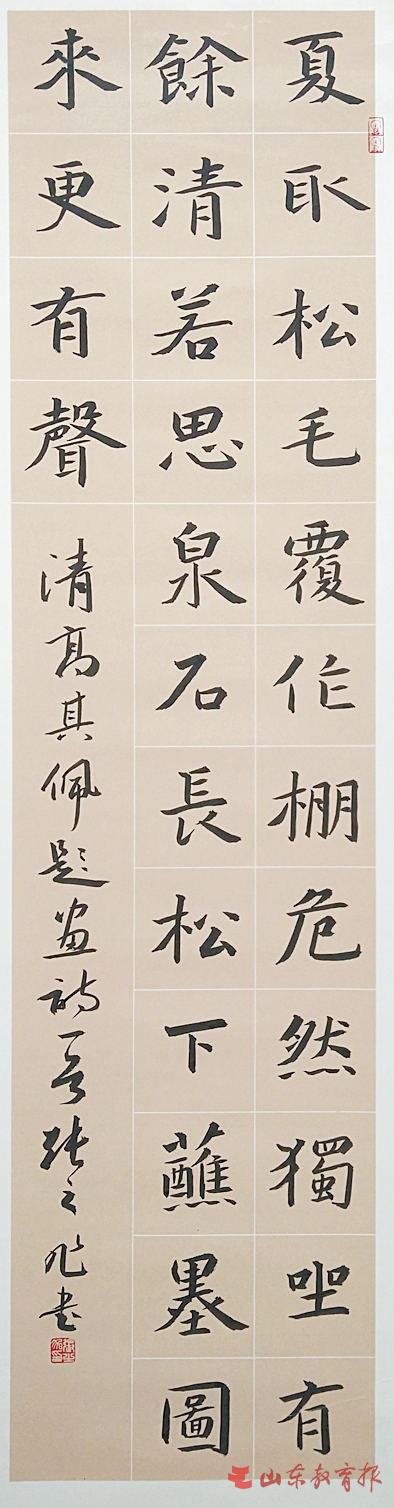 夏取松毛覆作棚危然獨坐有
餘清若思泉石長松下蘸墨圖
來更有聲
清高其佩題畫詩一首張之書
山东教育报